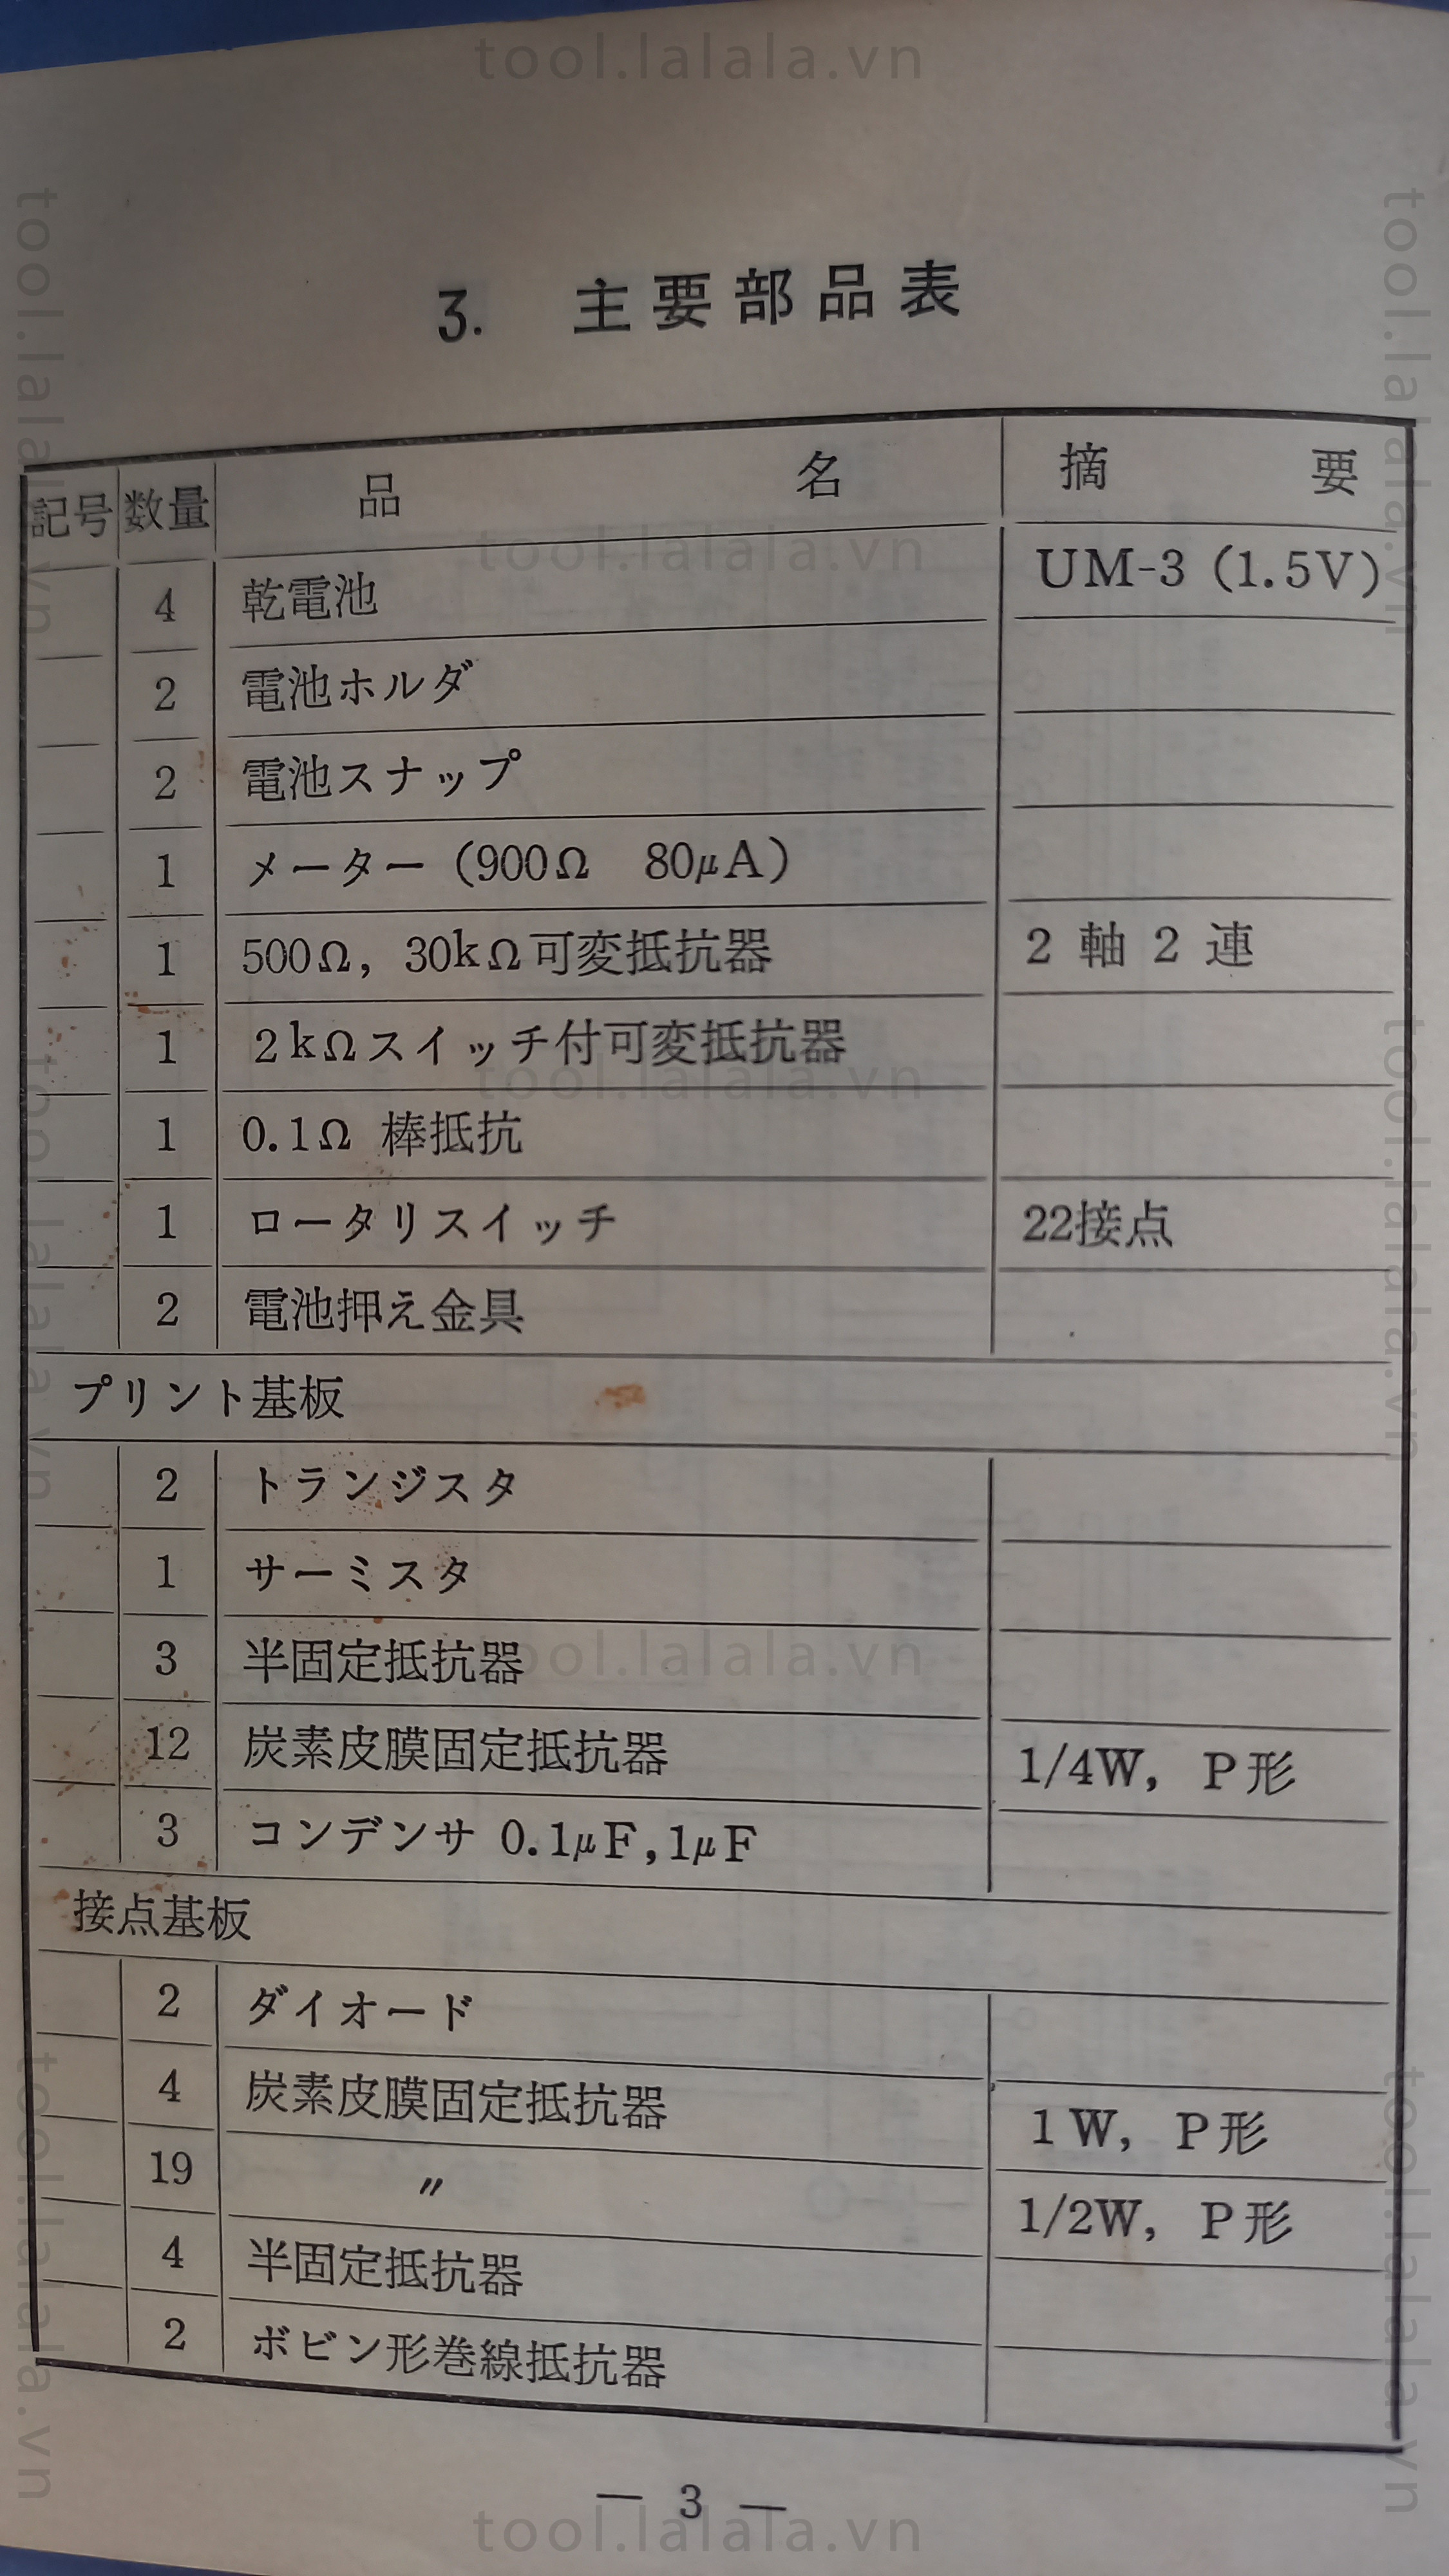 tool.lalala.vn
3. 主要部品表
記号 数量 品名 摘要
4 乾電池 UM-3 (1.5V)
2 電池ホルダ
2 電池スナップ
1 メーター (900Ω 80μA)
1 500Ω, 30kΩ可変抵抗器 2軸2連
1 2kΩスイッチ付可変抵抗器
1 0.1Ω 棒抵抗
1 ロータリスイッチ 22接点
2 電池押え金具
プリント基板
2 トランジスタ
1 サーミスタ
3 半固定抵抗器
12 炭素皮膜固定抵抗器 1/4W, P形
3 コンデンサ 0.1μF,1μF
接点基板
2 ダイオード
4 炭素皮膜固定抵抗器 1W, P形
19 〃 1/2W, P形
4 半固定抵抗器
2 ボビン形巻線抵抗器
— 3 —
tool.lalala.vn
tool.lalala.vn
tool.lalala.vn
tool.lalala.vn
tool.lalala.vn
tool.lalala.vn
tool.lalala.vn
tool.lalala.vn
tool.lalala.vn
tool.lalala.vn